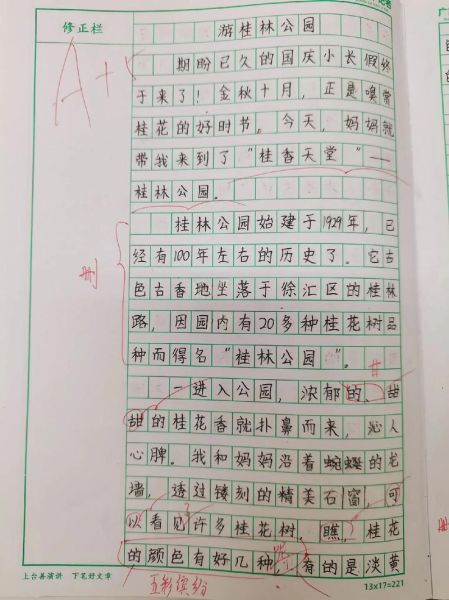 修正栏
A+
游桂林公园
期盼已久的国庆小长假终
于来了！金秋十月，正是嗅常
桂花的好时节。今天，妈妈就
带我来到了“桂香天堂”——
桂林公园。
桂林公园始建于1929年，已
经有100年左右的历史了。它古
色古香地坐落于徐汇区的桂林
路，因园内有20多种桂花树品
种而得名“桂林公园”。
删
一进入公园，浓郁的、甜
甜的桂花香就扑鼻而来，沁人
心脾。我和妈妈沿着蜿蜒的龙
墙，透过镂刻的精美石窗，可
以看见许多桂花树。瞧，桂花
的颜色有好几种，有的是淡黄
五彩缤纷
上台善演讲 下笔好文章
13×17=221